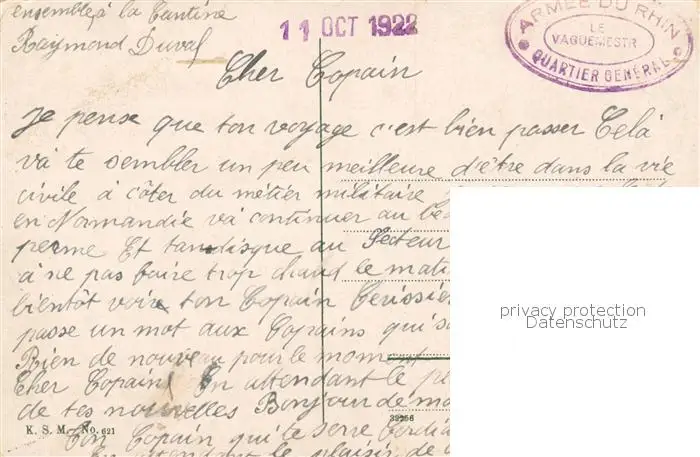 ensemble à la Cantine
Raymond Duval
11 OCT 1922
ARMÉE DU RHIN
LE
VAGUEMESTR
QUARTIER GENERAL
Cher Copain
Je pense que ton voyage c'est bien passer Celà
và te sembler un peu meilleure d'être dans la vie
civile à côter du métier militaire
en Normandie và continuer au be
perme Et tandisque au Secteur
à ne pas faire trop chaud le mati
bientôt voir ton Copain Cerissier
passe un mot aux Copains qui s
Rien de nouveau pour le moment
Cher Copain En attendant le
de tes nouvelles Bonjour de
K. S. M. No. 621
32256
Ton Copain qui te serre Cordia
En attendant le plaisir de
privacy protection
Datenschutz